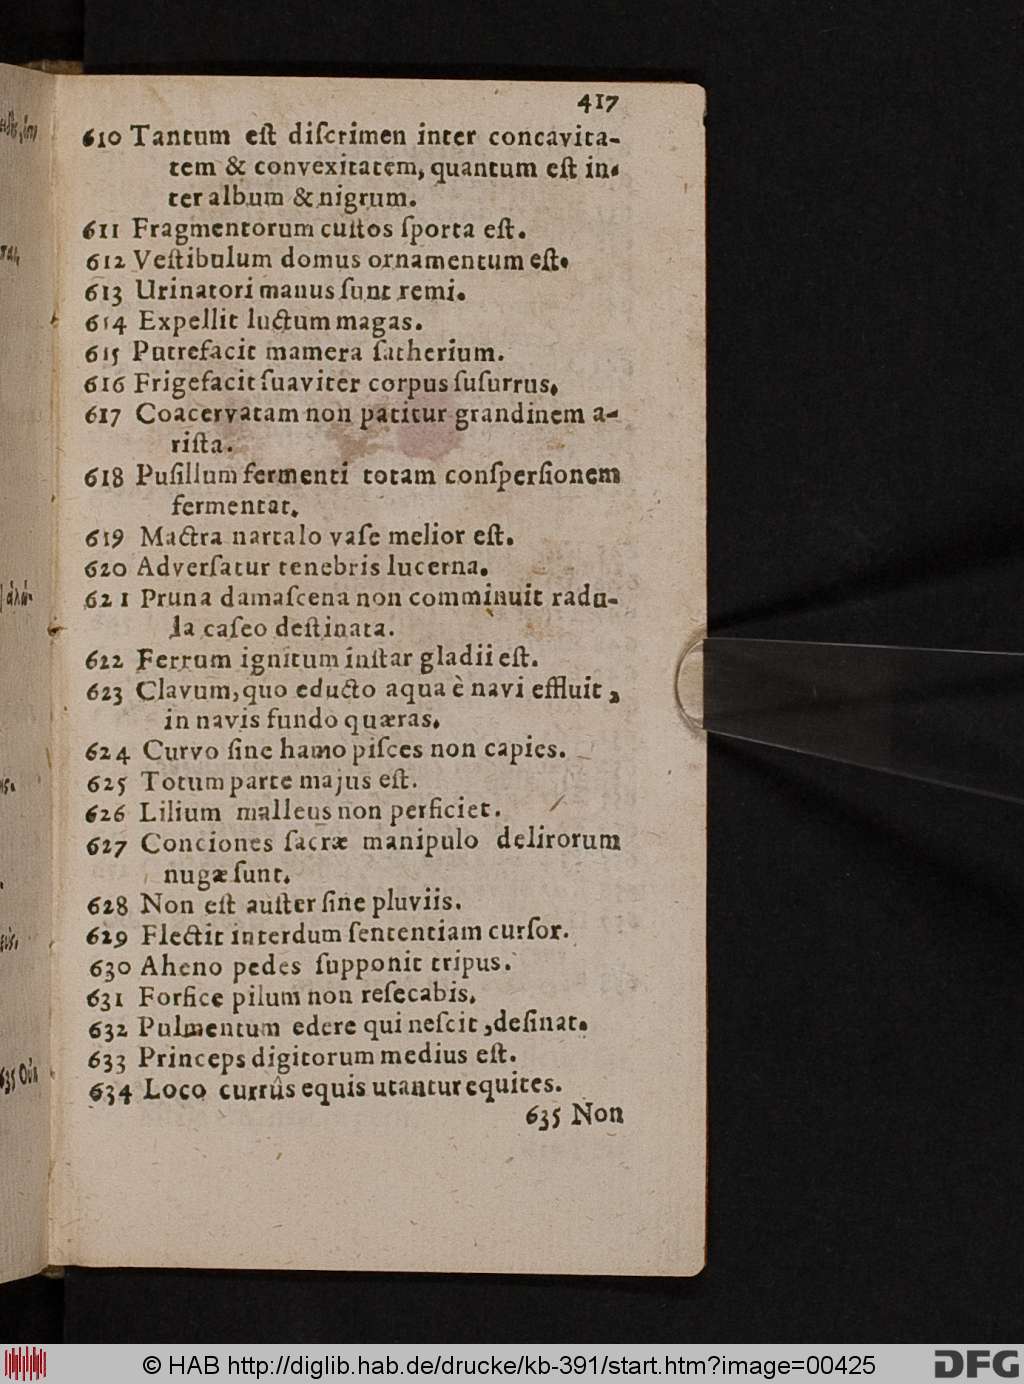 417
610 Tantum eſt diſcrimen inter concavita-
tem & convexitatem, quantum eſt in-
ter album & nigrum.
611 Fragmentorum cuſtos ſporta eſt.
612 Veſtibulum domus ornamentum eſt.
613 Urinatori manus ſunt remi.
614 Expellit luctum magas.
615 Putrefacit mamera ſatherium.
616 Frigefacit ſuaviter corpus ſuſurrus.
617 Coacervatam non patitur grandinem a-
riſta.
618 Puſillum fermenti totam conſperſionem
fermentat.
619 Mactra nartalo vaſe melior eſt.
620 Adverſatur tenebris lucerna.
621 Pruna damaſcena non comminuit radu-
la caſeo deſtinata.
622 Ferrum ignitum inſtar gladii eſt.
623 Clavum, quo educto aqua è navi effluit,
in navis fundo quæras.
624 Curvo ſine hamo piſces non capies.
625 Totum parte majus eſt.
626 Lilium malleus non perficiet.
627 Conciones ſacræ manipulo delirorum
nugæ ſunt.
628 Non eſt auſter ſine pluviis.
629 Flectit interdum ſententiam curſor.
630 Aheno pedes ſupponit tripus.
631 Forfice pilum non reſecabis.
632 Pulmentum edere qui neſcit, deſinat.
633 Princeps digitorum medius eſt.
634 Loco currûs equis utantur equites.
635 Non
© HAB http://diglib.hab.de/drucke/kb-391/start.htm?image=00425
DFG